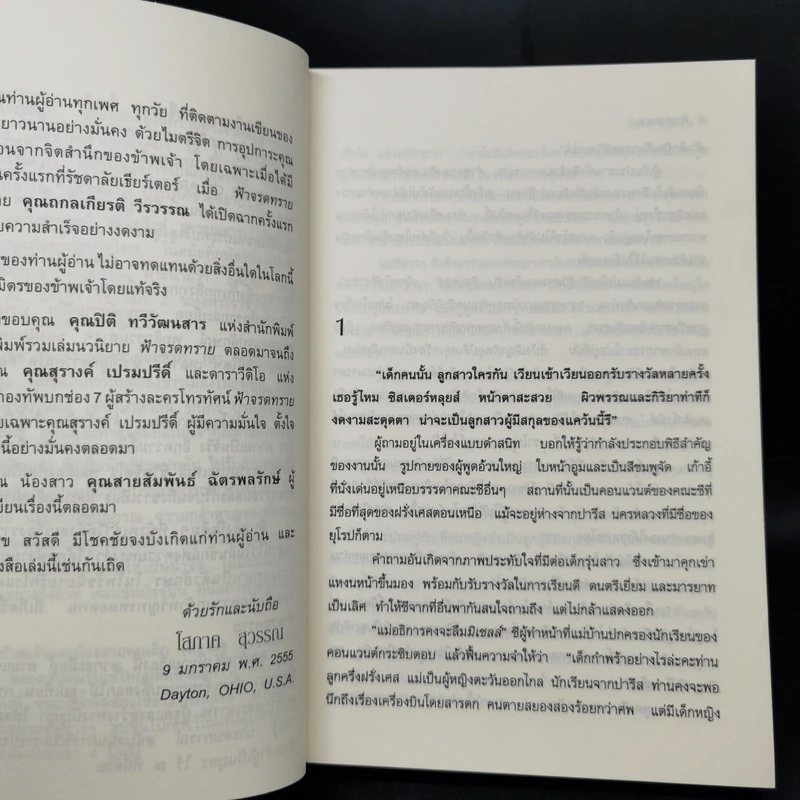 นท่านผู้อ่านทุกเพศ ทุกวัย ที่ติดตามงานเขียนของ
ยาวนานอย่างมั่นคง ด้วยไมตรีจิต การอุปการะคุณ
อนจากจิตสำนึกของข้าพเจ้า โดยเฉพาะเมื่อได้มี
นครั้งแรกที่รัชดาลัยเธียร์เตอร์ เมื่อ ฟ้าจรดทราย
ย คุณถกลเกียรติ วีรวรรณ ได้เปิดฉากครั้งแรก
ยความสำเร็จอย่างงดงาม
ของท่านผู้อ่าน ไม่อาจทดแทนด้วยสิ่งอื่นใดในโลกนี้
มิตรของข้าพเจ้าโดยแท้จริง
งขอบคุณ คุณปิติ ทวีวัฒนสาร แห่งสำนักพิมพ์
พิมพ์รวมเล่มนวนิยาย ฟ้าจรดทราย ตลอดมาจนถึง
ณ คุณสุรางค์ เปรมปรีดิ์ และดาราวีดีโอ แห่ง
องทัพบกช่อง 7 ผู้สร้างละครโทรทัศน์ ฟ้าจรดทราย
ยเฉพาะคุณสุรางค์ เปรมปรีดิ์ ผู้มีความมั่นใจ ตั้งใจ
นี้อย่างมั่นคงตลอดมา
ณ น้องสาว คุณสายสัมพันธ์ ฉัตรพลรักษ์ ผู้
ขียนเรื่องนี้ตลอดมา
ข สวัสดี มีโชคชัยจงบังเกิดแก่ท่านผู้อ่าน และ
งสือเล่มนี้เช่นกันเถิด
ด้วยรักและนับถือ
โสภาค สุวรรณ
9 มกราคม พ.ศ. 2555
Dayton, OHIO, U.S.A.
1
“เด็กคนนั้น ลูกสาวใครกัน เวียนเข้าเวียนออกรับรางวัลหลายครั้ง
เธอรู้ไหม ซิสเตอร์หลุยส์ หน้าตาสะสวย ผิวพรรณและกิริยาท่าทีก็
งดงามสะดุดตา น่าจะเป็นลูกสาวผู้มีสกุลของแคว้นนี้รึ”
ผู้ถามอยู่ในเครื่องแบบดำสนิท บอกให้รู้ว่ากำลังประกอบพิธีสำคัญ
ของงานนั้น รูปกายของผู้พูดอ้วนใหญ่ ใบหน้าอูมและเป็นสีชมพูจัด เก้าอี้
ที่นั่งเด่นอยู่เหนือบรรดาคณะชีอื่นๆ สถานที่นั้นเป็นคอนแวนต์ของคณะชีที่
มีชื่อที่สุดของฝรั่งเศสตอนเหนือ แม้จะอยู่ห่างจากปารีส นครหลวงที่มีชื่อของ
ยุโรปก็ตาม
คำถามอันเกิดจากภาพประทับใจที่มีต่อเด็กรุ่นสาว ซึ่งเข้ามาคุกเข่า
แหงนหน้าขึ้นมอง พร้อมกับรับรางวัลในการเรียนดี ดนตรีเยี่ยม และมารยาท
เป็นเลิศ ทำให้ชีจากที่อื่นพากันสนใจถามถึง แต่ไม่กล้าแสดงออก
“แม่อธิการคงจะลืมมิเชลล์” ชีผู้ทำหน้าที่แม่บ้านปกครองนักเรียนของ
คอนแวนต์กระซิบตอบ แล้วฟื้นความจำให้ว่า “เด็กกำพร้าอย่างไรล่ะคะท่าน
ลูกครึ่งฝรั่งเศส แม่เป็นผู้หญิงตะวันออกไกล นักเรียนจากปารีส ท่านคงจะพอ
นึกถึงเรื่องเครื่องบินโดยสารตก คนตายสยองสองร้อยกว่าศพ แต่มีเด็กหญิง